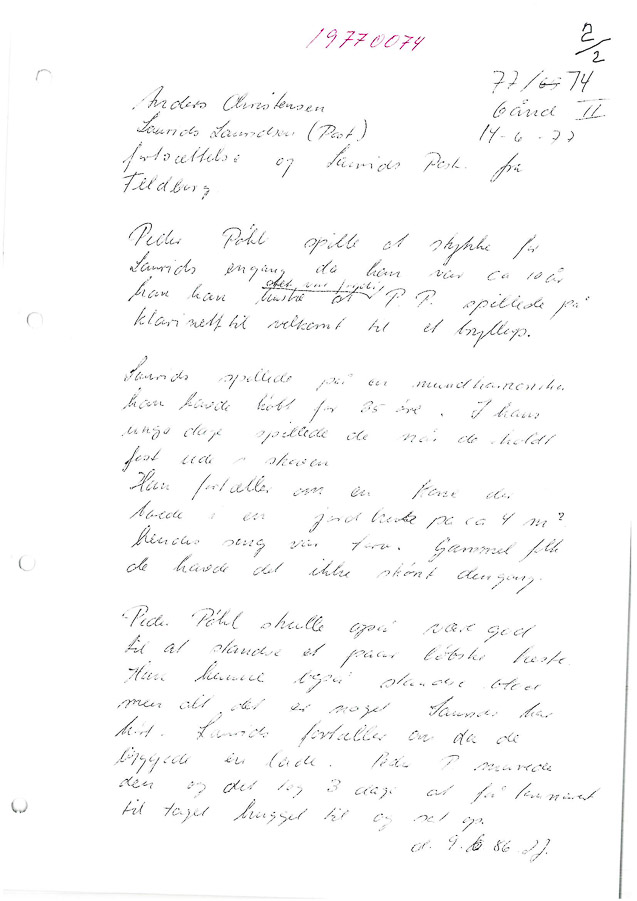 19770074
2/2
77/69 74
Bånd II
14-6-77
Anders Christensen
Laurids Lauridsen (Post)
fortsættelse og Laurids Post fra
Feldborg
Peder Pöhl spille et stykke for
Laurids engang da han var ca 10 år
han kan huske at P.P. spillede på
klarinett til velkomt til et bryllup.
Laurids spillede på en mundharmonika
han havde købt for 85 øre. I hans
unge dage spillede de når de holdt
fest ude i skoven
Han fortæller om en kone der
boede i en jord hytte på ca 4 m²
hendes seng var tørv. Gammel folk
de havde det ikke skönt dengang.
Peder Pöhl skulle også være god
til at standse et paar löbske heste.
Han kunne også standse blod
men alt det er noget Laurids har
hört. Laurids fortæller om da de
byggede en lade. Peder P murede
den og det tog 3 dage at få tömmeret
til taget hugget til og sat op.
d. 9. 6 86